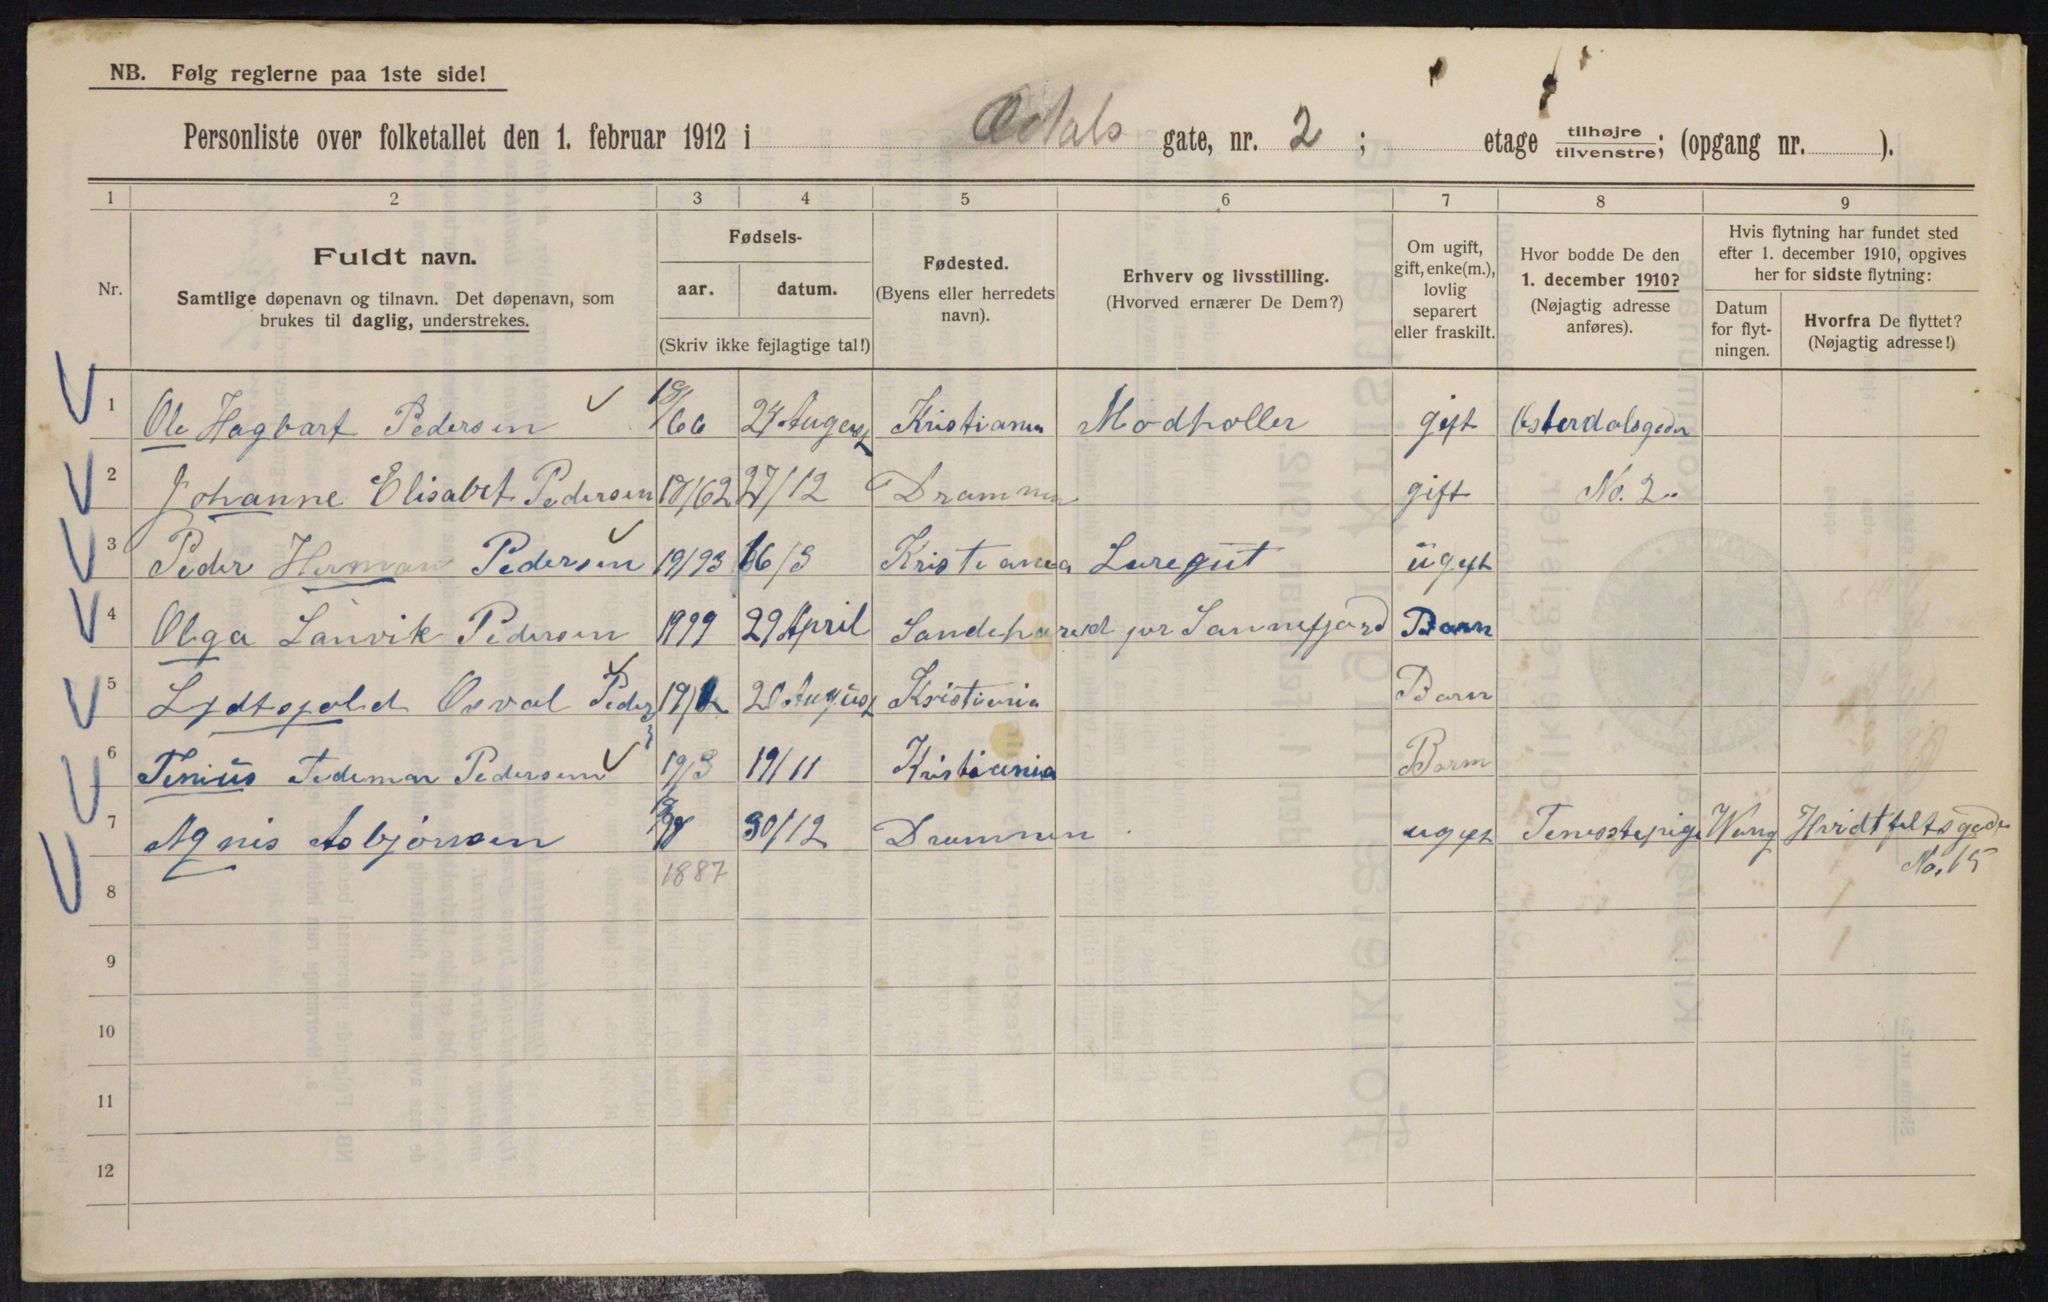 NB. Følg reglerne paa 1ste side!
Personliste over folketallet den 1. februar 1912 i Østerdals gate, nr. 2 ; etage tilhøjre / tilvenstre; (opgang nr. ).
1 2 3 4 5 6 7 8 9
Nr.
Fuldt navn.
Samtlige døpenavn og tilnavn. Det døpenavn, som
brukes til daglig, understrekes.
Fødsels-
aar. datum.
(Skriv ikke fejlagtige tal!)
Fødested.
(Byens eller herredets
navn).
Erhverv og livsstilling.
(Hvorved ernærer De Dem?)
Om ugift,
gift, enke(m.),
lovlig
separert
eller fraskilt.
Hvor bodde De den
1. december 1910?
(Nøjagtig adresse
anføres).
Hvis flytning har fundet sted
efter 1. december 1910, opgives
her for sidste flytning:
Datum
for flyt-
ningen.
Hvorfra De flyttet?
(Nøjagtig adresse!)
1 Ole Hagbart Pedersen 18/66 24 August Kristiania Modholler gift Østerdalsgeden
2 Johanne Elisabet Pedersen 18/62 27/12 Drammen gift No. 2.
3 Peder Herman Pedersen 19/93 16/3 Kristiania Luregut ugift
4 Olga Lanvik Pedersen 1999 29 April Sandeherred for Sannefjord Barn
5 Osval Peders 19/2 20 August Kristiania Barn
6 Tenius Tedemar Pedersen 19/3 19/11 Kristiania Barn
7 Agnis Asbjørnsen 30/12 Drammen ugift Tenestepige Hvidtfeltsgeden
No. 15
8 1887
9
10
11
12